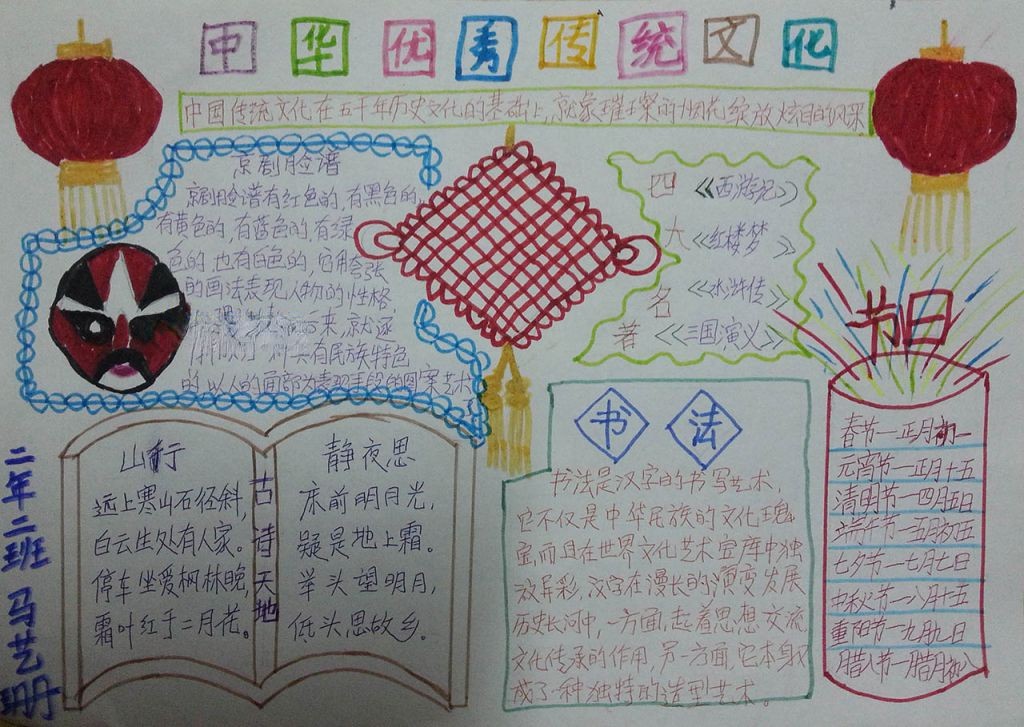 中华优秀传统文化
中国传统文化在五千年历史文化的基础上,就象璀璨的烟花绽放炫目的风采
京剧脸谱
京剧脸谱有红色的,有黑色的,
有黄色的,有蓝色的,有绿
色的,也有白色的,它用夸张
的画法表现人物的性格
后来,就逐
具有民族特色
的,以人的面部为表现手段的图案艺术
四大名著
《西游记》
《红楼梦》
《水浒传》
《三国演义》
节日
春节—正月初一
元宵节—正月十五
清明节—四月五日
端午节—五月初五
七夕节—七月七日
中秋节—八月十五
重阳节—九月九日
腊八节—腊月初八
古诗天地
山行
远上寒山石径斜,
白云生处有人家。
停车坐爱枫林晚,
霜叶红于二月花。
静夜思
床前明月光,
疑是地上霜。
举头望明月,
低头思故乡。
书法
书法是汉字的书写艺术,
它不仅是中华民族的文化瑰
宝,而且在世界文化艺术宝库中独
放异彩,汉字在漫长的演变发展
历史长河中,一方面,起着思想交流
文化传承的作用,另一方面,它本身又
成了一种独特的造型艺术。
二年二班 马艺珊